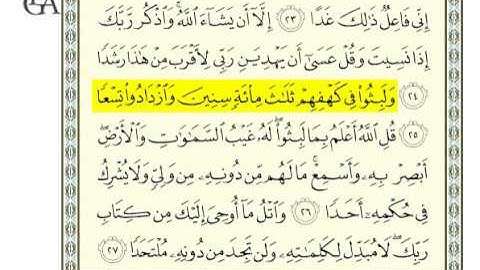 إِنِّي فَاعِلٌ ذَٰلِكَ غَدًا ٢٣ إِلَّا أَن يَشَاءَ اللَّهُ ۚ وَاذْكُر رَّبَّكَ
إِذَا نَسِيتَ وَقُلْ عَسَىٰ أَن يَهْدِيَنِ رَبِّي لِأَقْرَبَ مِنْ هَٰذَا رَشَدًا
٢٤ وَلَبِثُوا فِي كَهْفِهِمْ ثَلَاثَ مِائَةٍ سِنِينَ وَازْدَادُوا تِسْعًا
٢٥ قُلِ اللَّهُ أَعْلَمُ بِمَا لَبِثُوا ۖ لَهُ غَيْبُ السَّمَاوَاتِ وَالْأَرْضِ ۖ
أَبْصِرْ بِهِ وَأَسْمِعْ ۚ مَا لَهُم مِّن دُونِهِ مِن وَلِيٍّ وَلَا يُشْرِكُ
فِي حُكْمِهِ أَحَدًا ٢٦ وَاتْلُ مَا أُوحِيَ إِلَيْكَ مِن كِتَابِ
رَبِّكَ ۖ لَا مُبَدِّلَ لِكَلِمَاتِهِ وَلَن تَجِدَ مِن دُونِهِ مُلْتَحَدًا ٢٧